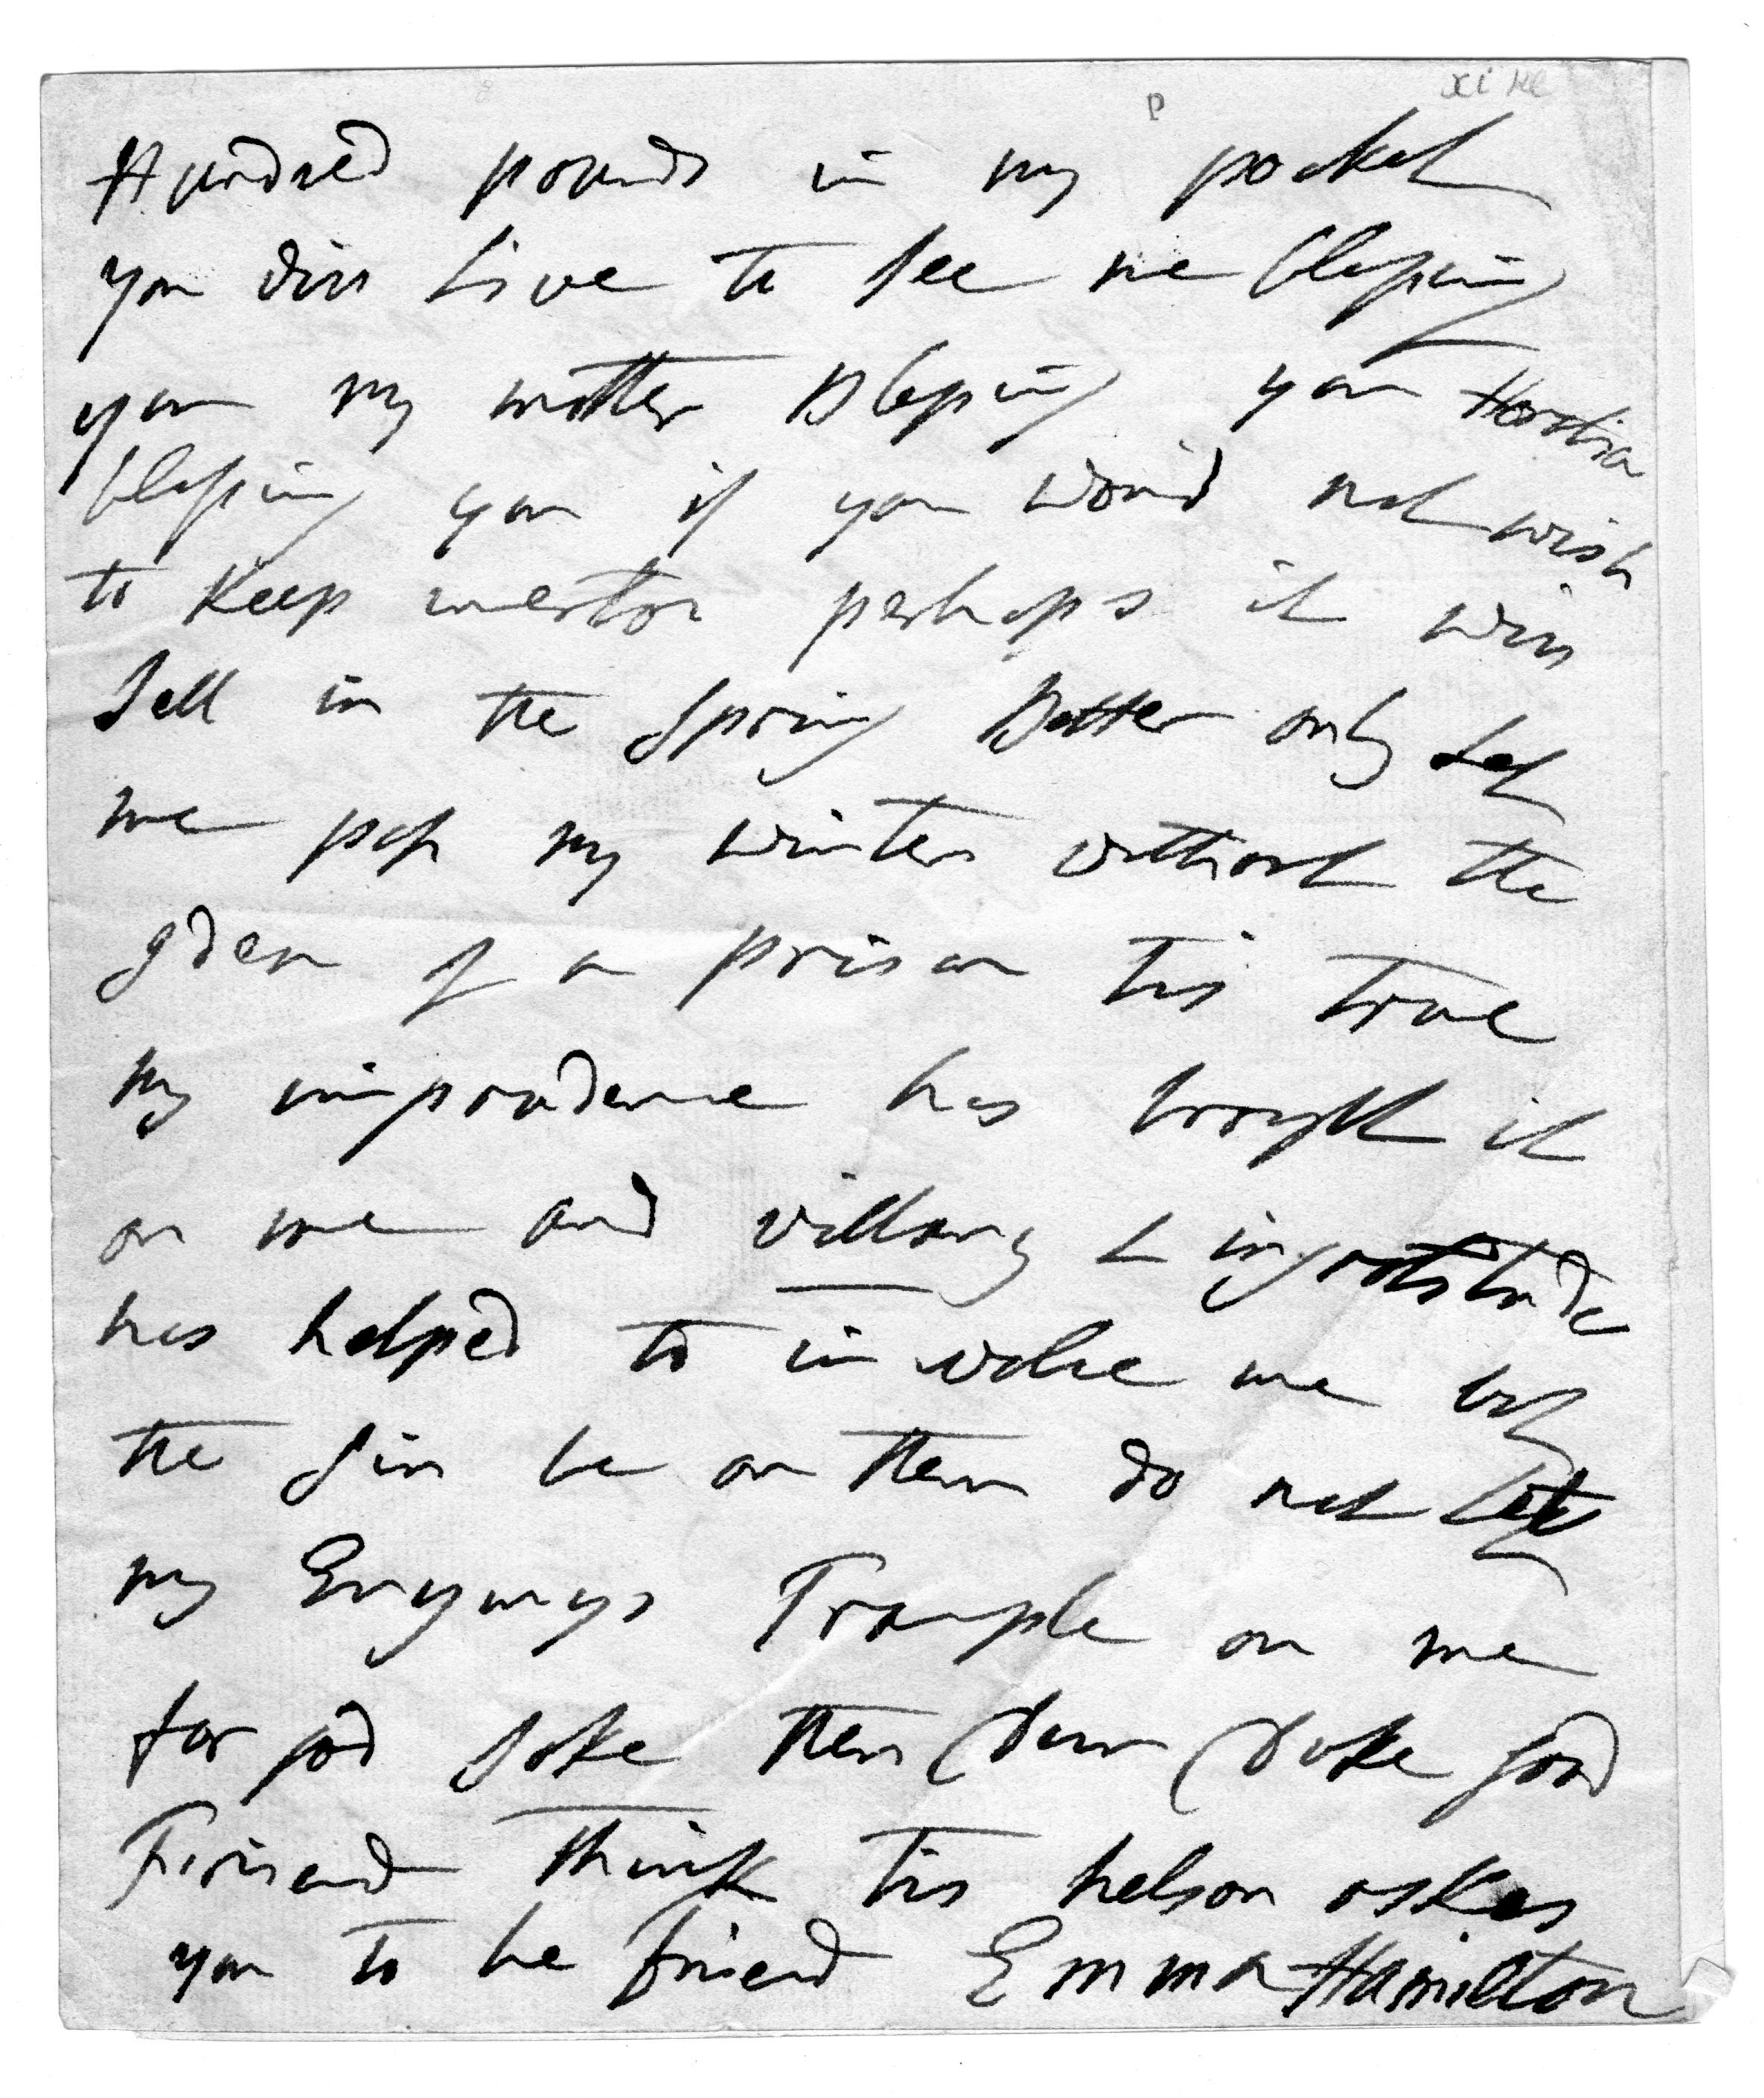 P
Hundred pounds in my pocket
you will Live to see me blessing
you my mother Blessing you Horatia
blessing you if you wou'd not wish
to Keep merton perhaps it will
Sell in the Spring Better only Let
me pass my winter without the
Idea of a prison tis true
my imprudence has brought it
on me and villany & ingratitude
has helped to involve me but
the sin be on them do not let
my Enymys Trample on me
for god sake then Dear Duke good
Friend think tis nelson askes
you to be friend Emma Hamilton